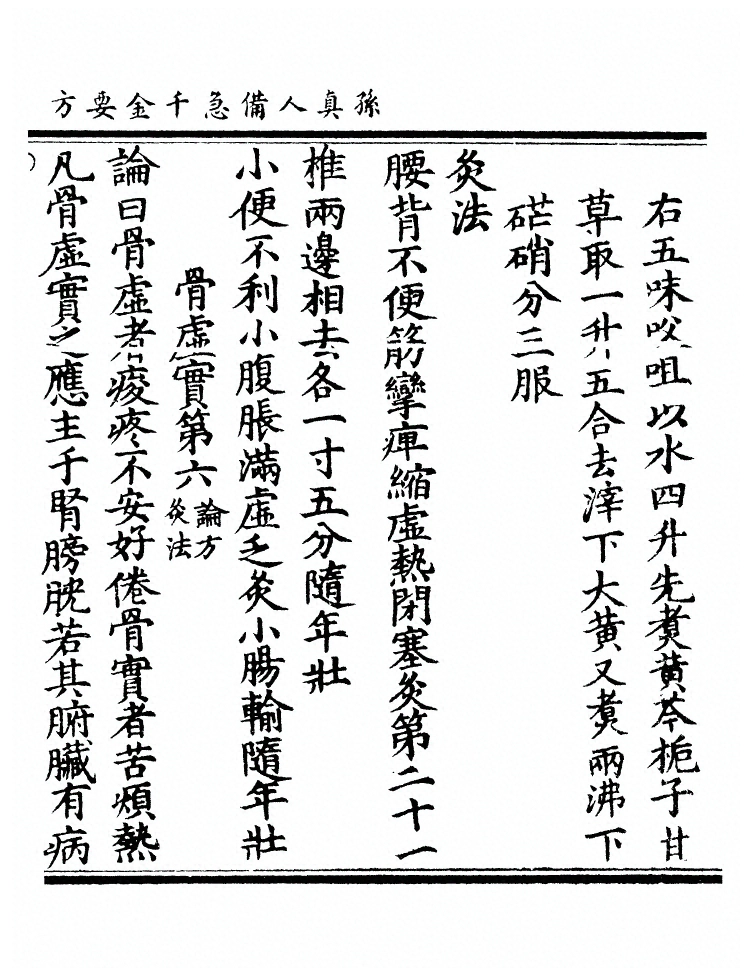 孫真人備急千金要方
右五味㕮咀以水四升先煑黄芩梔子甘
草取一升五合去滓下大黄又煑兩沸下
硭硝分三服
灸法
腰背不便筋攣痺縮虛熱閉塞灸第二十一
椎兩邊相去各一寸五分隨年壯
小便不利小腹脹滿虛乏灸小腸輸隨年壯
骨虛實第六論方灸法
論曰骨虛者痠疼不安好倦骨實者苦煩熱
凡骨虛實之應主于腎膀胱若其腑臟有病